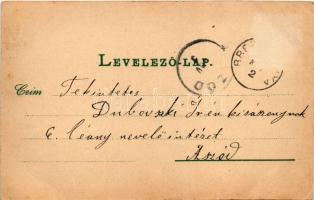 LEVELEZŐ-LAP.
Czim Tekintetes
Dubovszki Irén kisasszonynak
E. leány nevelő intézet
Aszód